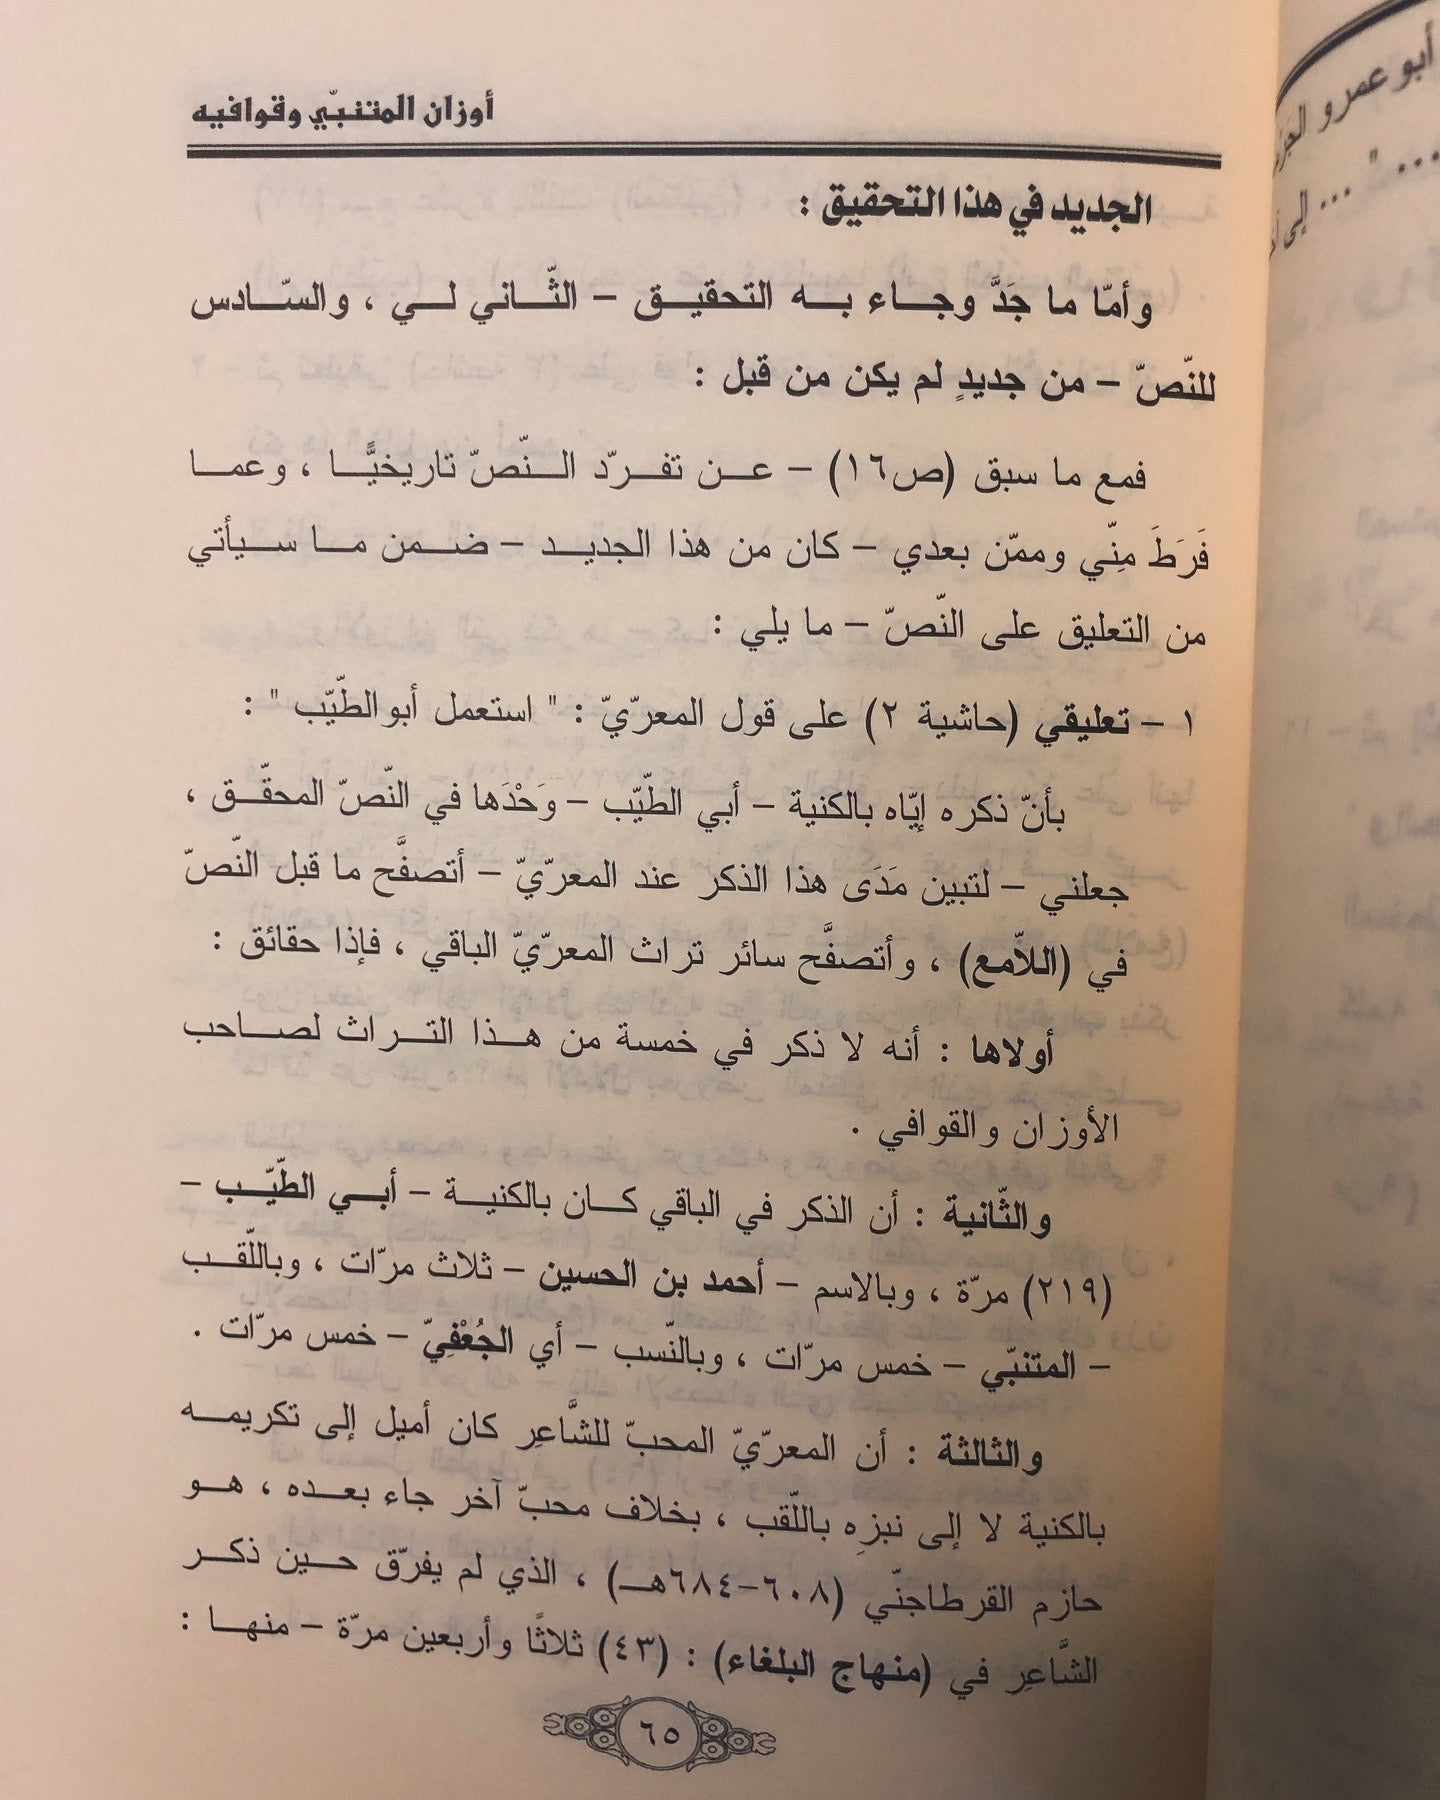 أوزان المتنبّي وقوافيه
الجديد في هذا التحقيق :
وأمّا ما جَدَّ وجاء به التحقيق – الثّاني لي ، والسّادس
للنّصّ – من جديدٍ لم يكن من قبل :
فمع ما سبق (ص١٦) – عن تفرّد النّصّ تاريخيًّا ، وعما
فَرَطَ مِنّي وممّن بعدي – كان من هذا الجديد – ضمن ما سيأتي
من التعليق على النّصّ – ما يلي :
١ – تعليقي (حاشية ٢) على قول المعرّيّ : " استعمل أبوالطّيّب " :
بأنّ ذكره إيّاه بالكنية – أبي الطّيّب – وَحْدَها في النّصّ المحقّق ،
جعلني – لتبين مَدَى هذا الذكر عند المعرّيّ – أتصفّح ما قبل النّصّ
في (اللاّمع) ، وأتصفَّح سائر تراث المعرّيّ الباقي ، فإذا حقائق :
أولاها : أنه لا ذكر في خمسة من هذا التراث لصاحب
الأوزان والقوافي .
والثّانية : أن الذكر في الباقي كان بالكنية – أبي الطّيّب –
(٢١٩) مرّة ، وبالاسم – أحمد بن الحسين – ثلاث مرّات ، وباللّقب
– المتنبّي – خمس مرّات ، وبالنّسب – أي الجُعْفِيّ – خمس مرّات .
والثالثة : أن المعرّيّ المحبّ للشَّاعِر كان أميل إلى تكريمه
بالكنية لا إلى نبزِه باللّقب ، بخلاف محبّ آخر جاء بعده ، هو
حازم القرطاجنّي (٦٠٨-٦٨٤هـ) ، الذي لم يفرّق حين ذكر
الشَّاعِر في (منهاج البلغاء) : (٤٣) ثلاثًا وأربعين مرّة – منها :
٦٥
أبو عمرو